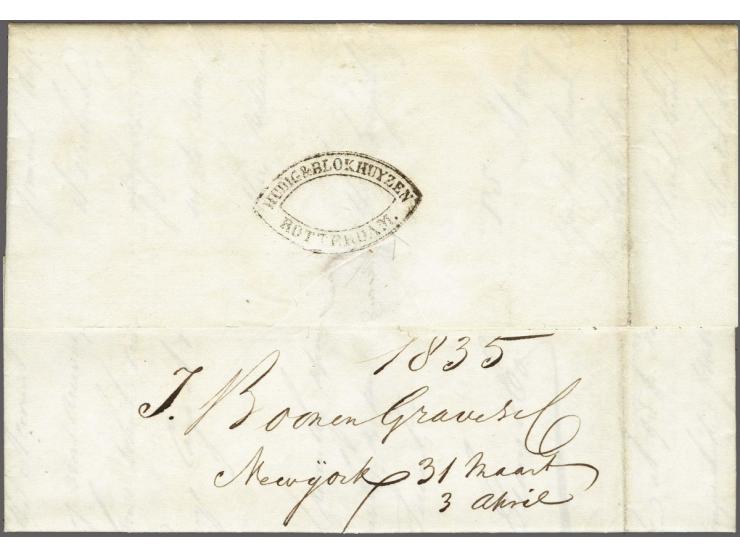 HUDIG & BLOKHUYZEN
ROTTERDAM.
1835
J. Boonen Graves &C
Newÿork 31 Maart
3 April